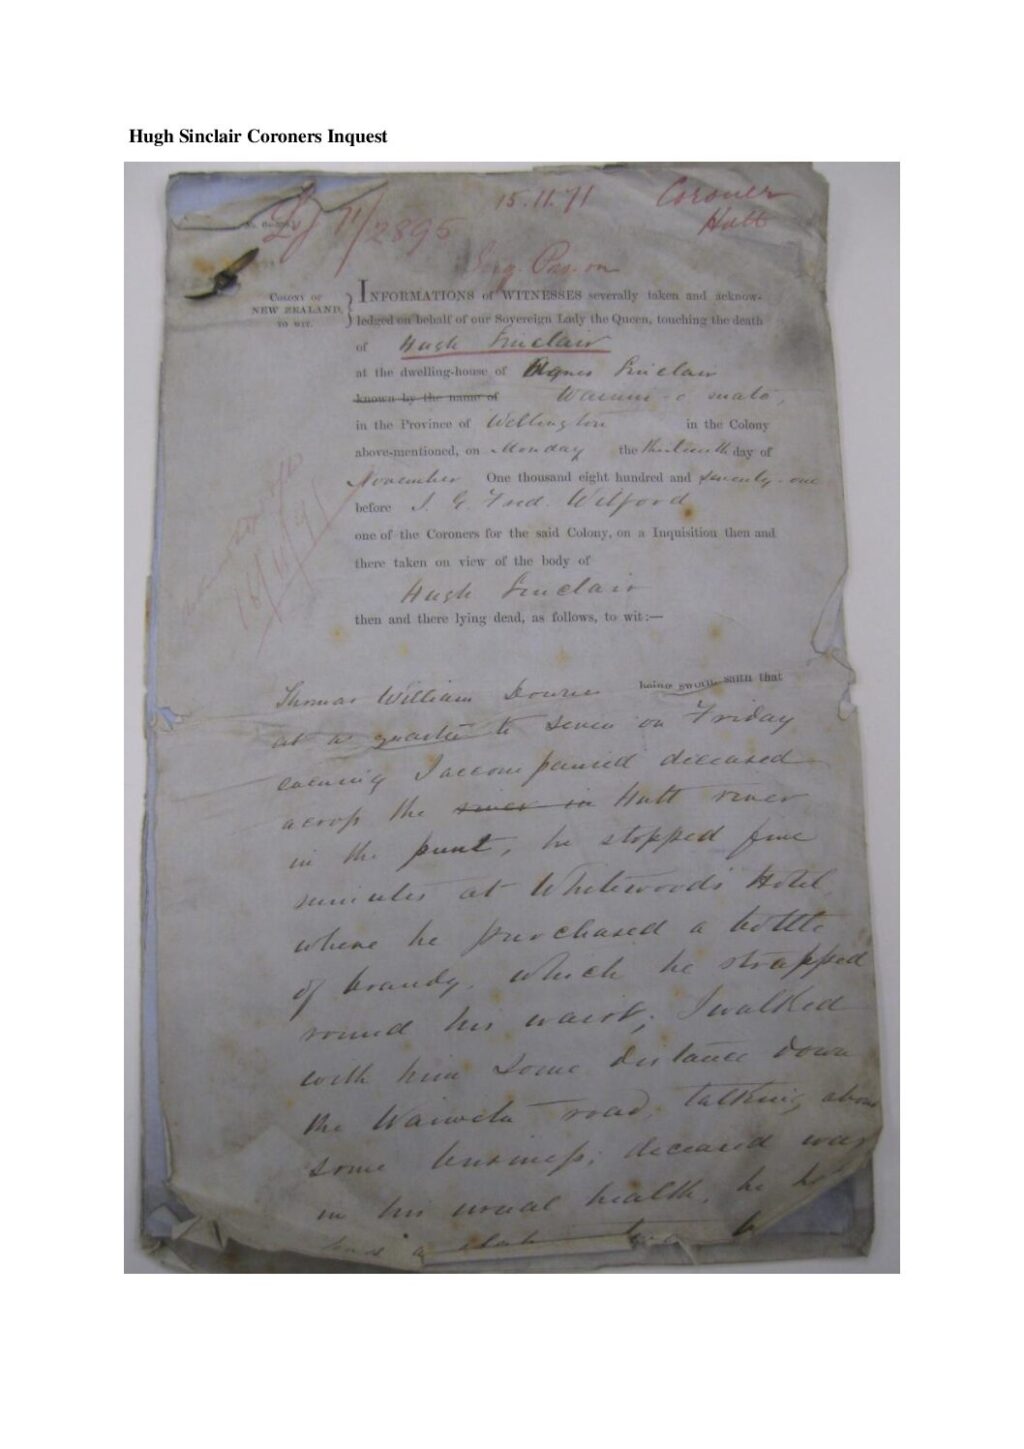 Hugh Sinclair Coroners Inquest
15.11.71 Coroner
Hutt
71/2895
COLONY OF
NEW ZEALAND,
TO WIT.
INFORMATIONS of WITNESSES severally taken and acknow-
ledged on behalf of our Sovereign Lady the Queen, touching the death
of Hugh Sinclair
at the dwelling-house of Agnes Sinclair
known by the name of Wainui-o-mata,
in the Province of Wellington in the Colony
above-mentioned, on Monday the thirteenth day of
November One thousand eight hundred and seventy-one
before J. G. Fred. Wilford
one of the Coroners for the said Colony, on a Inquisition then and
there taken on view of the body of
Hugh Sinclair
then and there lying dead, as follows, to wit:—
16/11/71
Thomas William being sworn saith that
at a quarter to seven on Friday
evening I accompanied deceased
across the river in Hutt river
in the punt, he stopped five
minutes at Whitewood's Hotel
where he purchased a bottle
of brandy, which he strapped
round his waist, I walked
with him some distance down
the Waiwetu road, talking about
some business; deceased was
in his usual health, he
had a